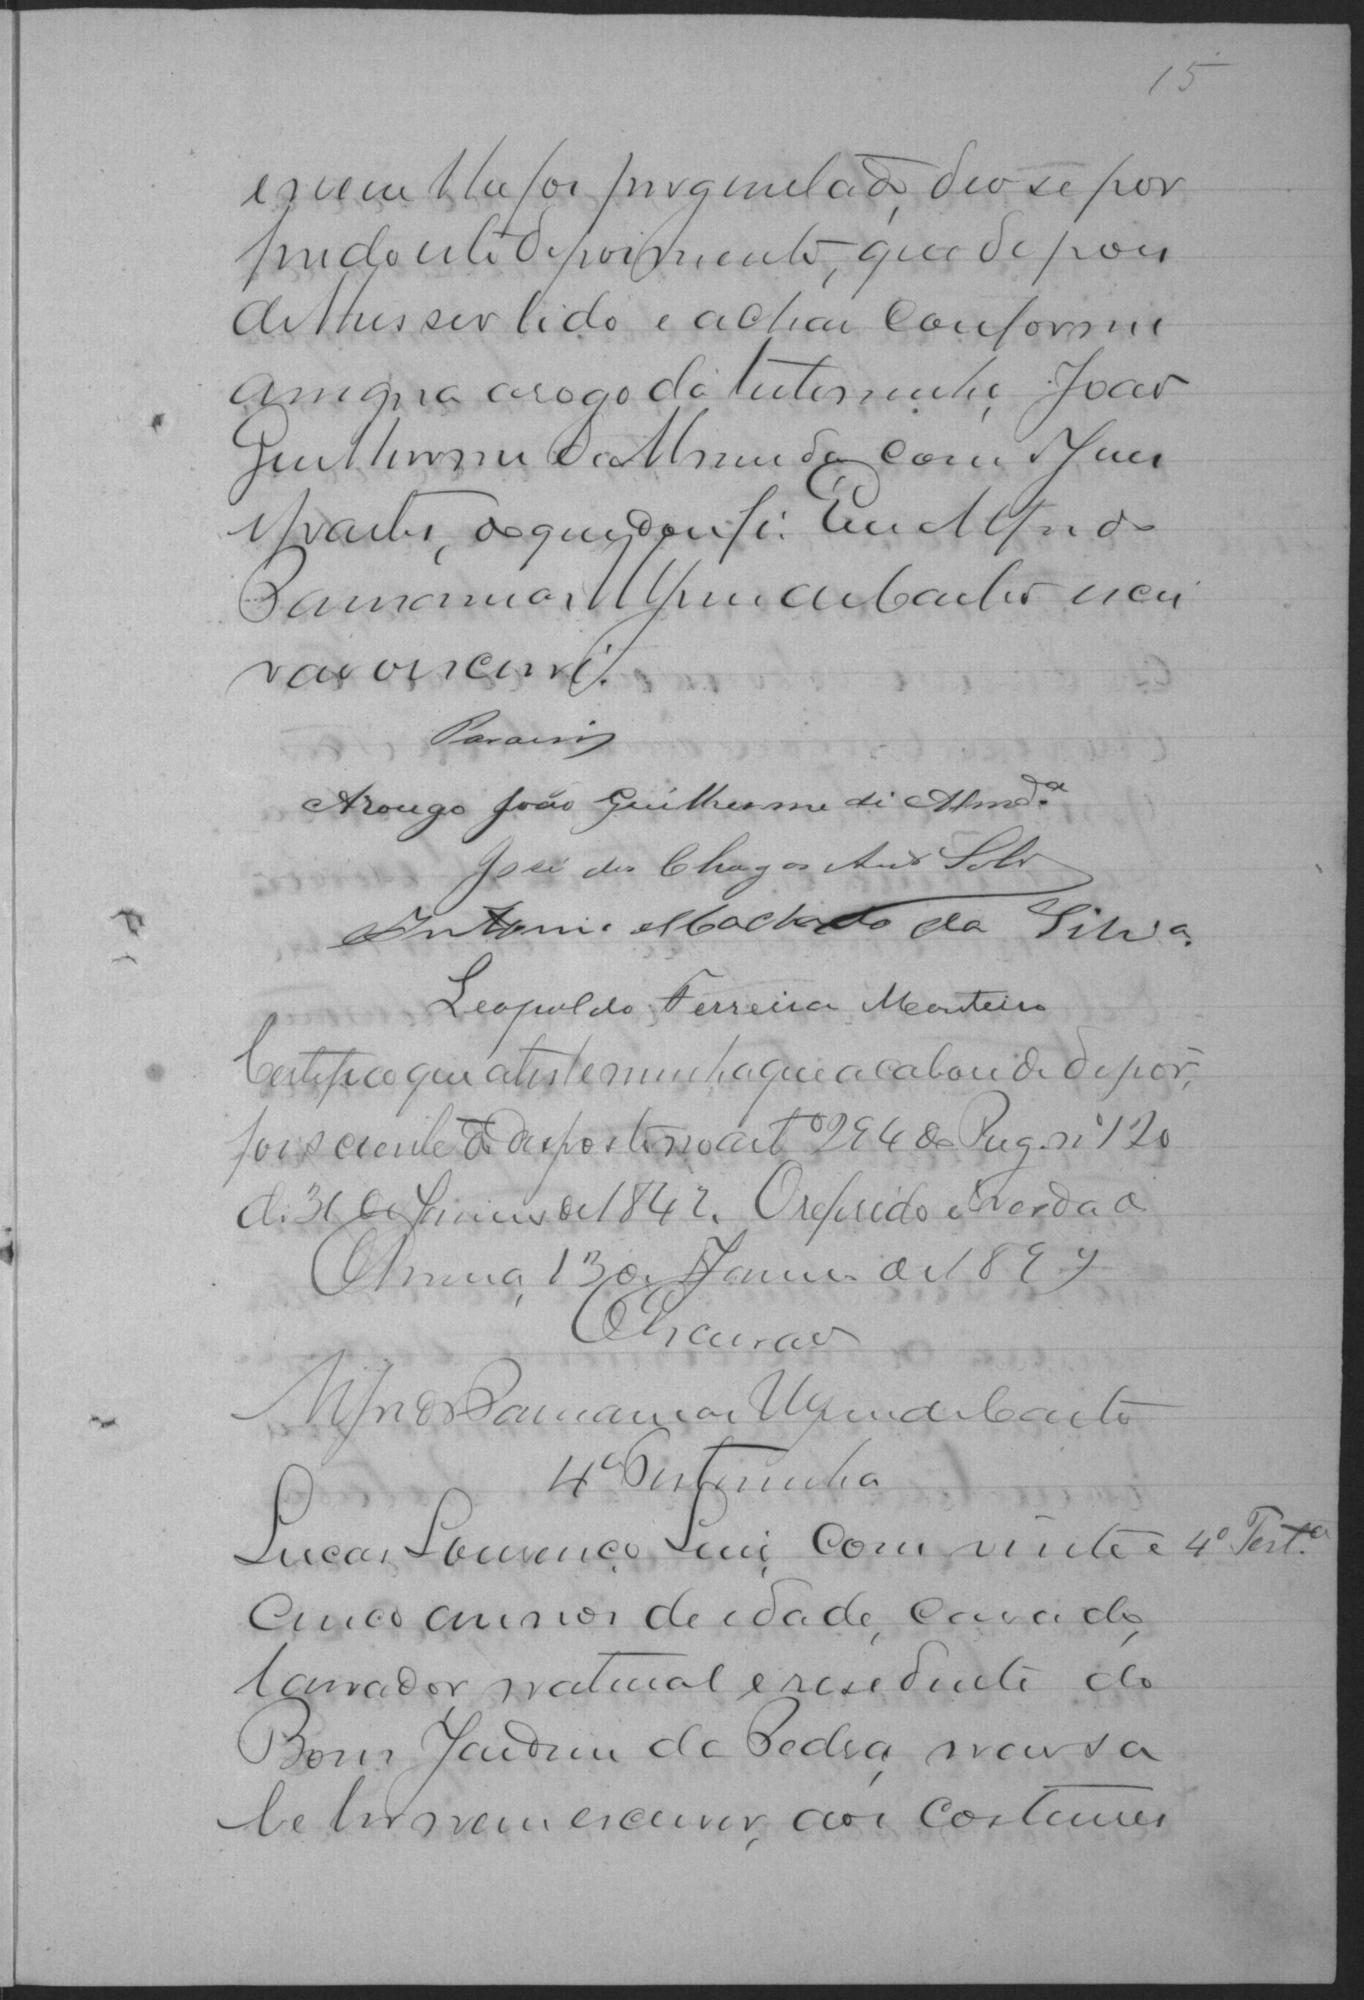 15
e nem lhe foi perguntado, deo se por
findo este depoimento, que depois
de lhes ser lido e achar conforme
assigna arogo da testemunha João
Guilherme de Almeida com o Juiz
e partes, do que dou fé. Eu Alfredo
de Castro escri
vão o escrevi.
Arougo João Guilherme di Almdª
José das Chagas
Antonio Machado da Silva
Leopoldo Ferreira Monteiro
Certifico que a testemunha que acabou de depôr,
foi sciente do disposto no artº 294 do Reg. nº 120
de 31 de Janeiro de 1842. O referido é verdade
13 de Janeiro de 1897
O Escrivão
Alfredo de Castro
4ª Testemunha
Lucas Lourenço Luiz, com vinte e 4º Testª
cinco annos de idade, casado,
lavrador, natural e residente do
Bom Jardim da Pedra, não sa
be ler nem escrever, aos costumes